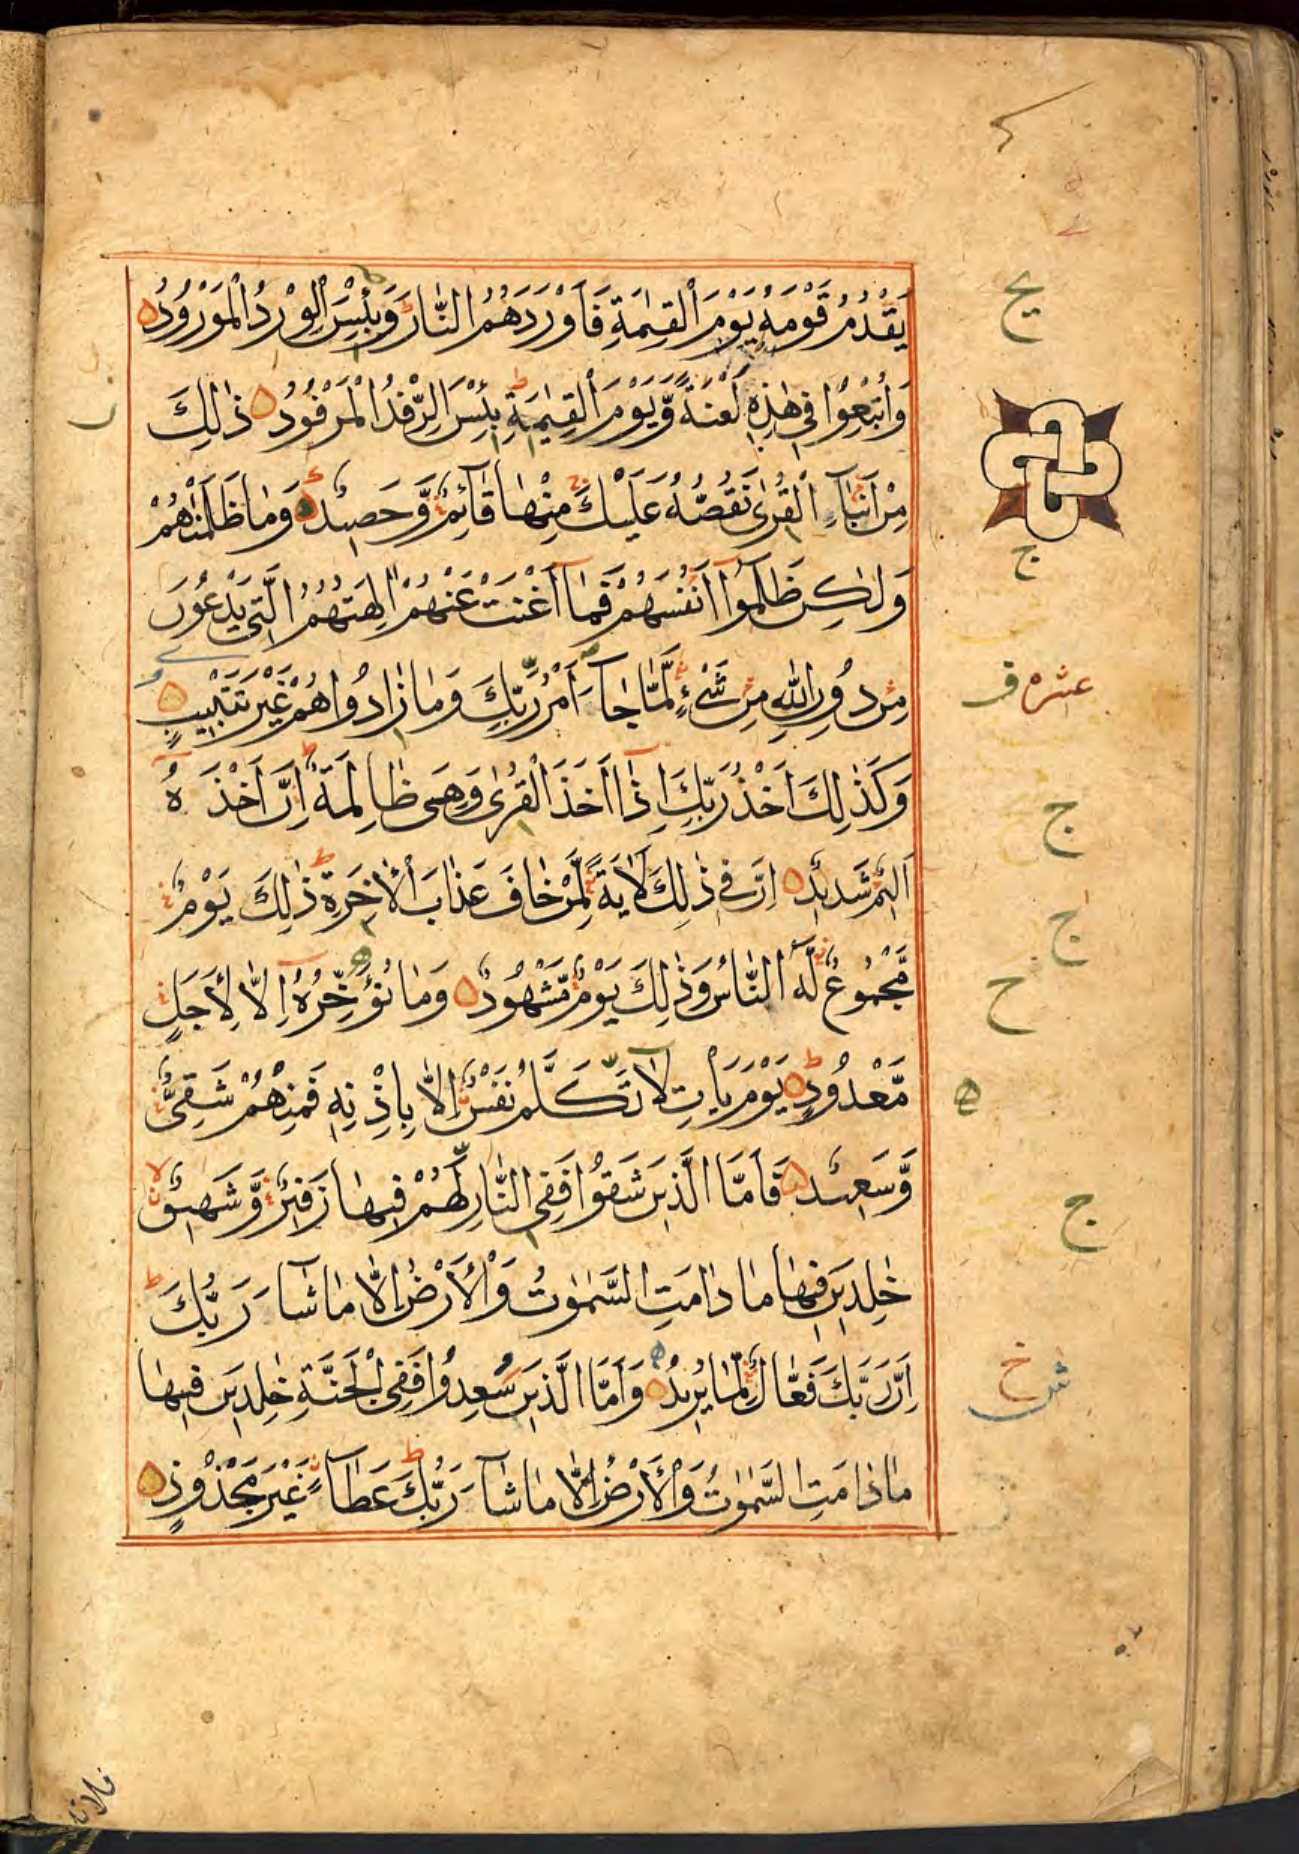 يَقْدُمُ قَوْمَهٗ يَوْمَ الْقِيٰمَةِ فَاَوْرَدَهُمُ النَّارَ ؕ وَبِئْسَ الْوِرْدُ الْمَوْرُوْدُ
وَاُتْبِعُوْا فِيْ هٰذِهٖ لَعْنَةً وَّيَوْمَ الْقِيٰمَةِ ؕ بِئْسَ الرِّفْدُ الْمَرْفُوْدُ ذٰلِكَ
مِنْ اَنْۢبَآءِ الْقُرٰى نَقُصُّهٗ عَلَيْكَ مِنْهَا قَآئِمٌ وَّحَصِيْدٌ وَمَا ظَلَمْنٰهُمْ
وَلٰكِنْ ظَلَمُوْۤا اَنْفُسَهُمْ فَمَاۤ اَغْنَتْ عَنْهُمْ اٰلِهَتُهُمُ الَّتِيْ يَدْعُوْنَ
مِنْ دُوْنِ اللّٰهِ مِنْ شَيْءٍ لَّمَّا جَآءَ اَمْرُ رَبِّكَ وَمَا زَادُوْاهُمْ غَيْرَ تَتْبِيْبٍ
وَكَذٰلِكَ اَخْذُ رَبِّكَ اِذَاۤ اَخَذَ الْقُرٰى وَهِيَ ظَالِمَةٌ ؕ اِنَّ اَخْذَهٗ
اَلِيْمٌ شَدِيْدٌ اِنَّ فِيْ ذٰلِكَ لَاٰيَةً لِّمَنْ خَافَ عَذَابَ الْاٰخِرَةِ ؕ ذٰلِكَ يَوْمٌ
مَّجْمُوْعٌ لَّهُ النَّاسُ وَذٰلِكَ يَوْمٌ مَّشْهُوْدٌ وَمَا نُؤَخِّرُهٗۤ اِلَّا لِاَجَلٍ
مَّعْدُوْدٍ ؕ يَوْمَ يَاْتِ لَا تَكَلَّمُ نَفْسٌ اِلَّا بِاِذْنِهٖ فَمِنْهُمْ شَقِيٌّ
وَّسَعِيْدٌ فَاَمَّا الَّذِيْنَ شَقُوْا فَفِي النَّارِ لَهُمْ فِيْهَا زَفِيْرٌ وَّشَهِيْقٌ ۙ
خٰلِدِيْنَ فِيْهَا مَا دَامَتِ السَّمٰوٰتُ وَالْاَرْضُ اِلَّا مَا شَآءَ رَبُّكَ ؕ
اِنَّ رَبَّكَ فَعَّالٌ لِّمَا يُرِيْدُ وَاَمَّا الَّذِيْنَ سُعِدُوْا فَفِي الْجَنَّةِ خٰلِدِيْنَ فِيْهَا
مَا دَامَتِ السَّمٰوٰتُ وَالْاَرْضُ اِلَّا مَا شَآءَ رَبُّكَ ؕ عَطَآءً غَيْرَ مَجْذُوْذٍ
ج
عشره
ف
ج
ج
ح
ه
ج
خ